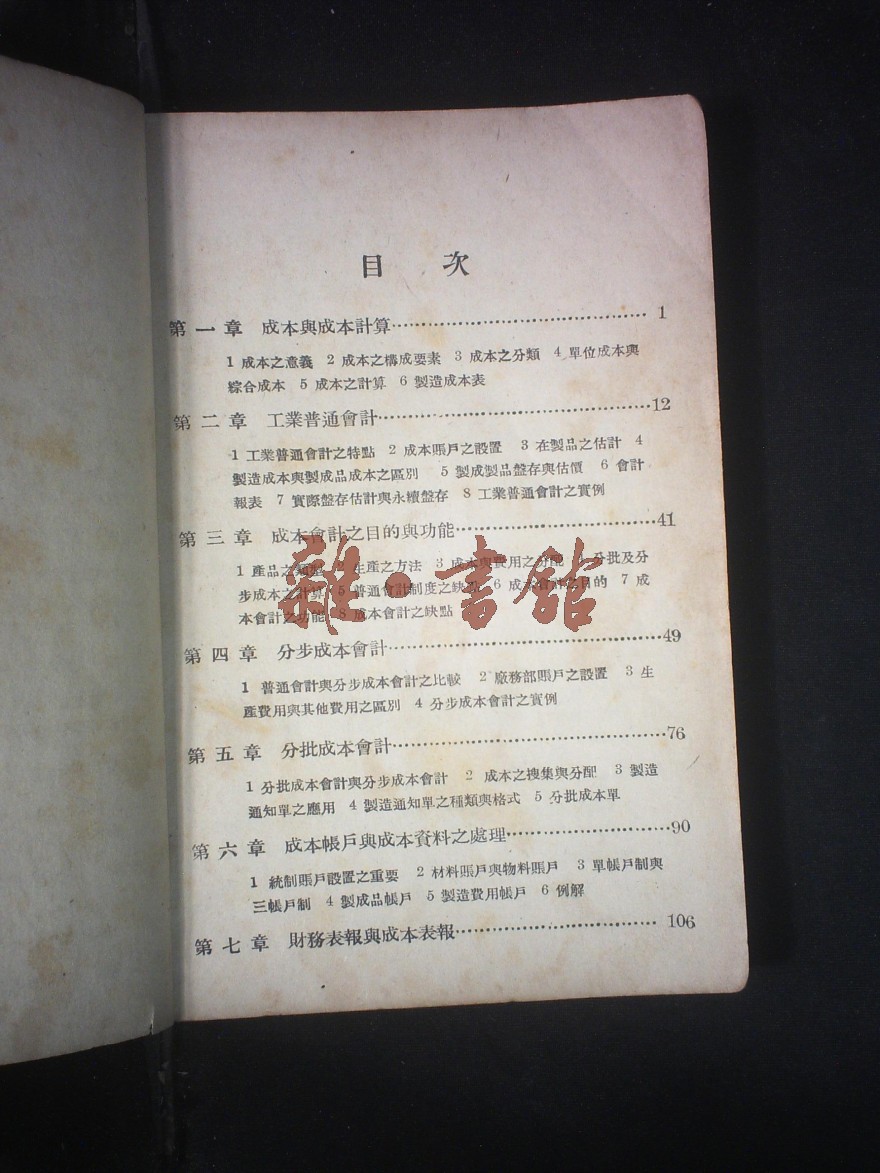 目 次
第一章 成本與成本計算 1
1 成本之意義 2 成本之構成要素 3 成本之分類 4 單位成本與
綜合成本 5 成本之計算 6 製造成本表
第二章 工業普通會計 12
1 工業普通會計之特點 2 成本賬戶之設置 3 在製品之估計 4
製造成本與製成品成本之區別 5 製成製品盤存與估價 6 會計
報表 7 實際盤存估計與永續盤存 8 工業普通會計之實例
第三章 成本會計之目的與功能 41
1 產品之類型 2 生產之方法 3 成本與費用之分配 4 分批及分
步成本之計算 5 普通會計制度之缺點 6 成本會計之目的 7 成
本會計之功能 8 成本會計之缺點
第四章 分步成本會計 49
1 普通會計與分步成本會計之比較 2 廠務部賬戶之設置 3 生
產費用與其他費用之區別 4 分步成本會計之實例
第五章 分批成本會計 76
1 分批成本會計與分步成本會計 2 成本之搜集與分配 3 製造
通知單之應用 4 製造通知單之種類與格式 5 分批成本單
第六章 成本帳戶與成本資料之處理 90
1 統制賬戶設置之重要 2 材料賬戶與物料賬戶 3 單帳戶制與
三帳戶制 4 製成品帳戶 5 製造費用帳戶 6 例解
第七章 財務表報與成本表報 106
雜·書館